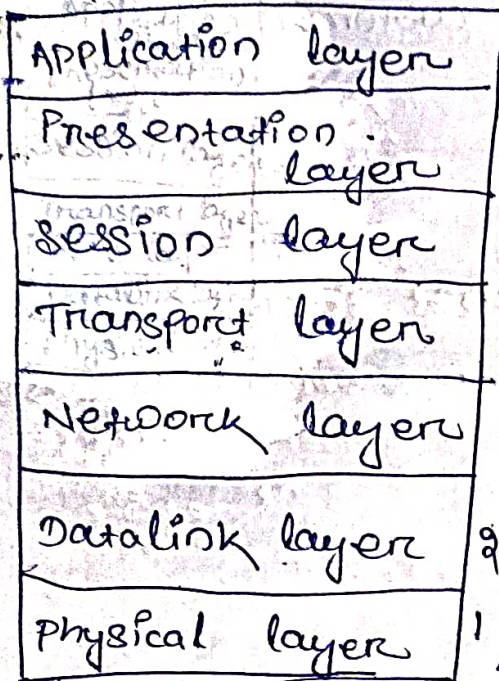 Application layer
Presentation.
layer
Session layer
Transport layer
Network layer
Datalink layer 2
Physical layer 1